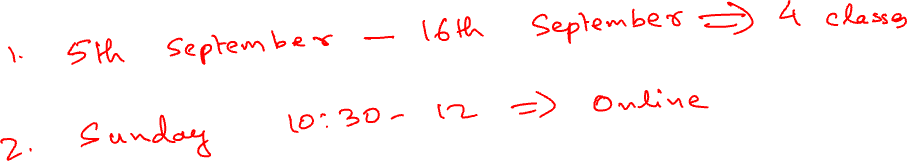 1. 5th September - 16th September => 4 classes
2. Sunday 10:30- 12 => Online